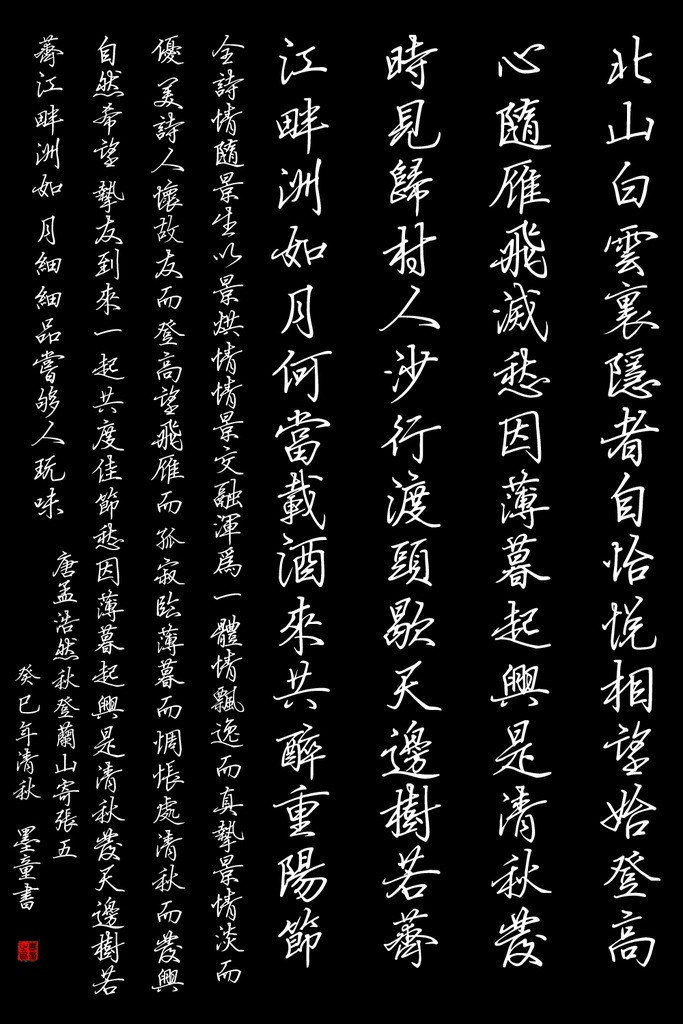 北山白雲裏隱者自怡悅相望始登高
心隨雁飛滅愁因薄暮起興是清秋發
時見歸村人沙行渡頭歇天邊樹若薺
江畔洲如月何當載酒來共醉重陽節
全詩情隨景生以景烘情情景交融渾為一體情飄逸而真摯景情淡而
優美詩人懷故友而登高望飛雁而孤寂臨薄暮而惆悵處清秋而發興
自然希望摯友到來一起共度佳節愁因薄暮起興是清秋發天邊樹若
薺江畔洲如月細細品嘗够人玩味
唐孟浩然秋登蘭山寄張五
癸巳年清秋 墨童書